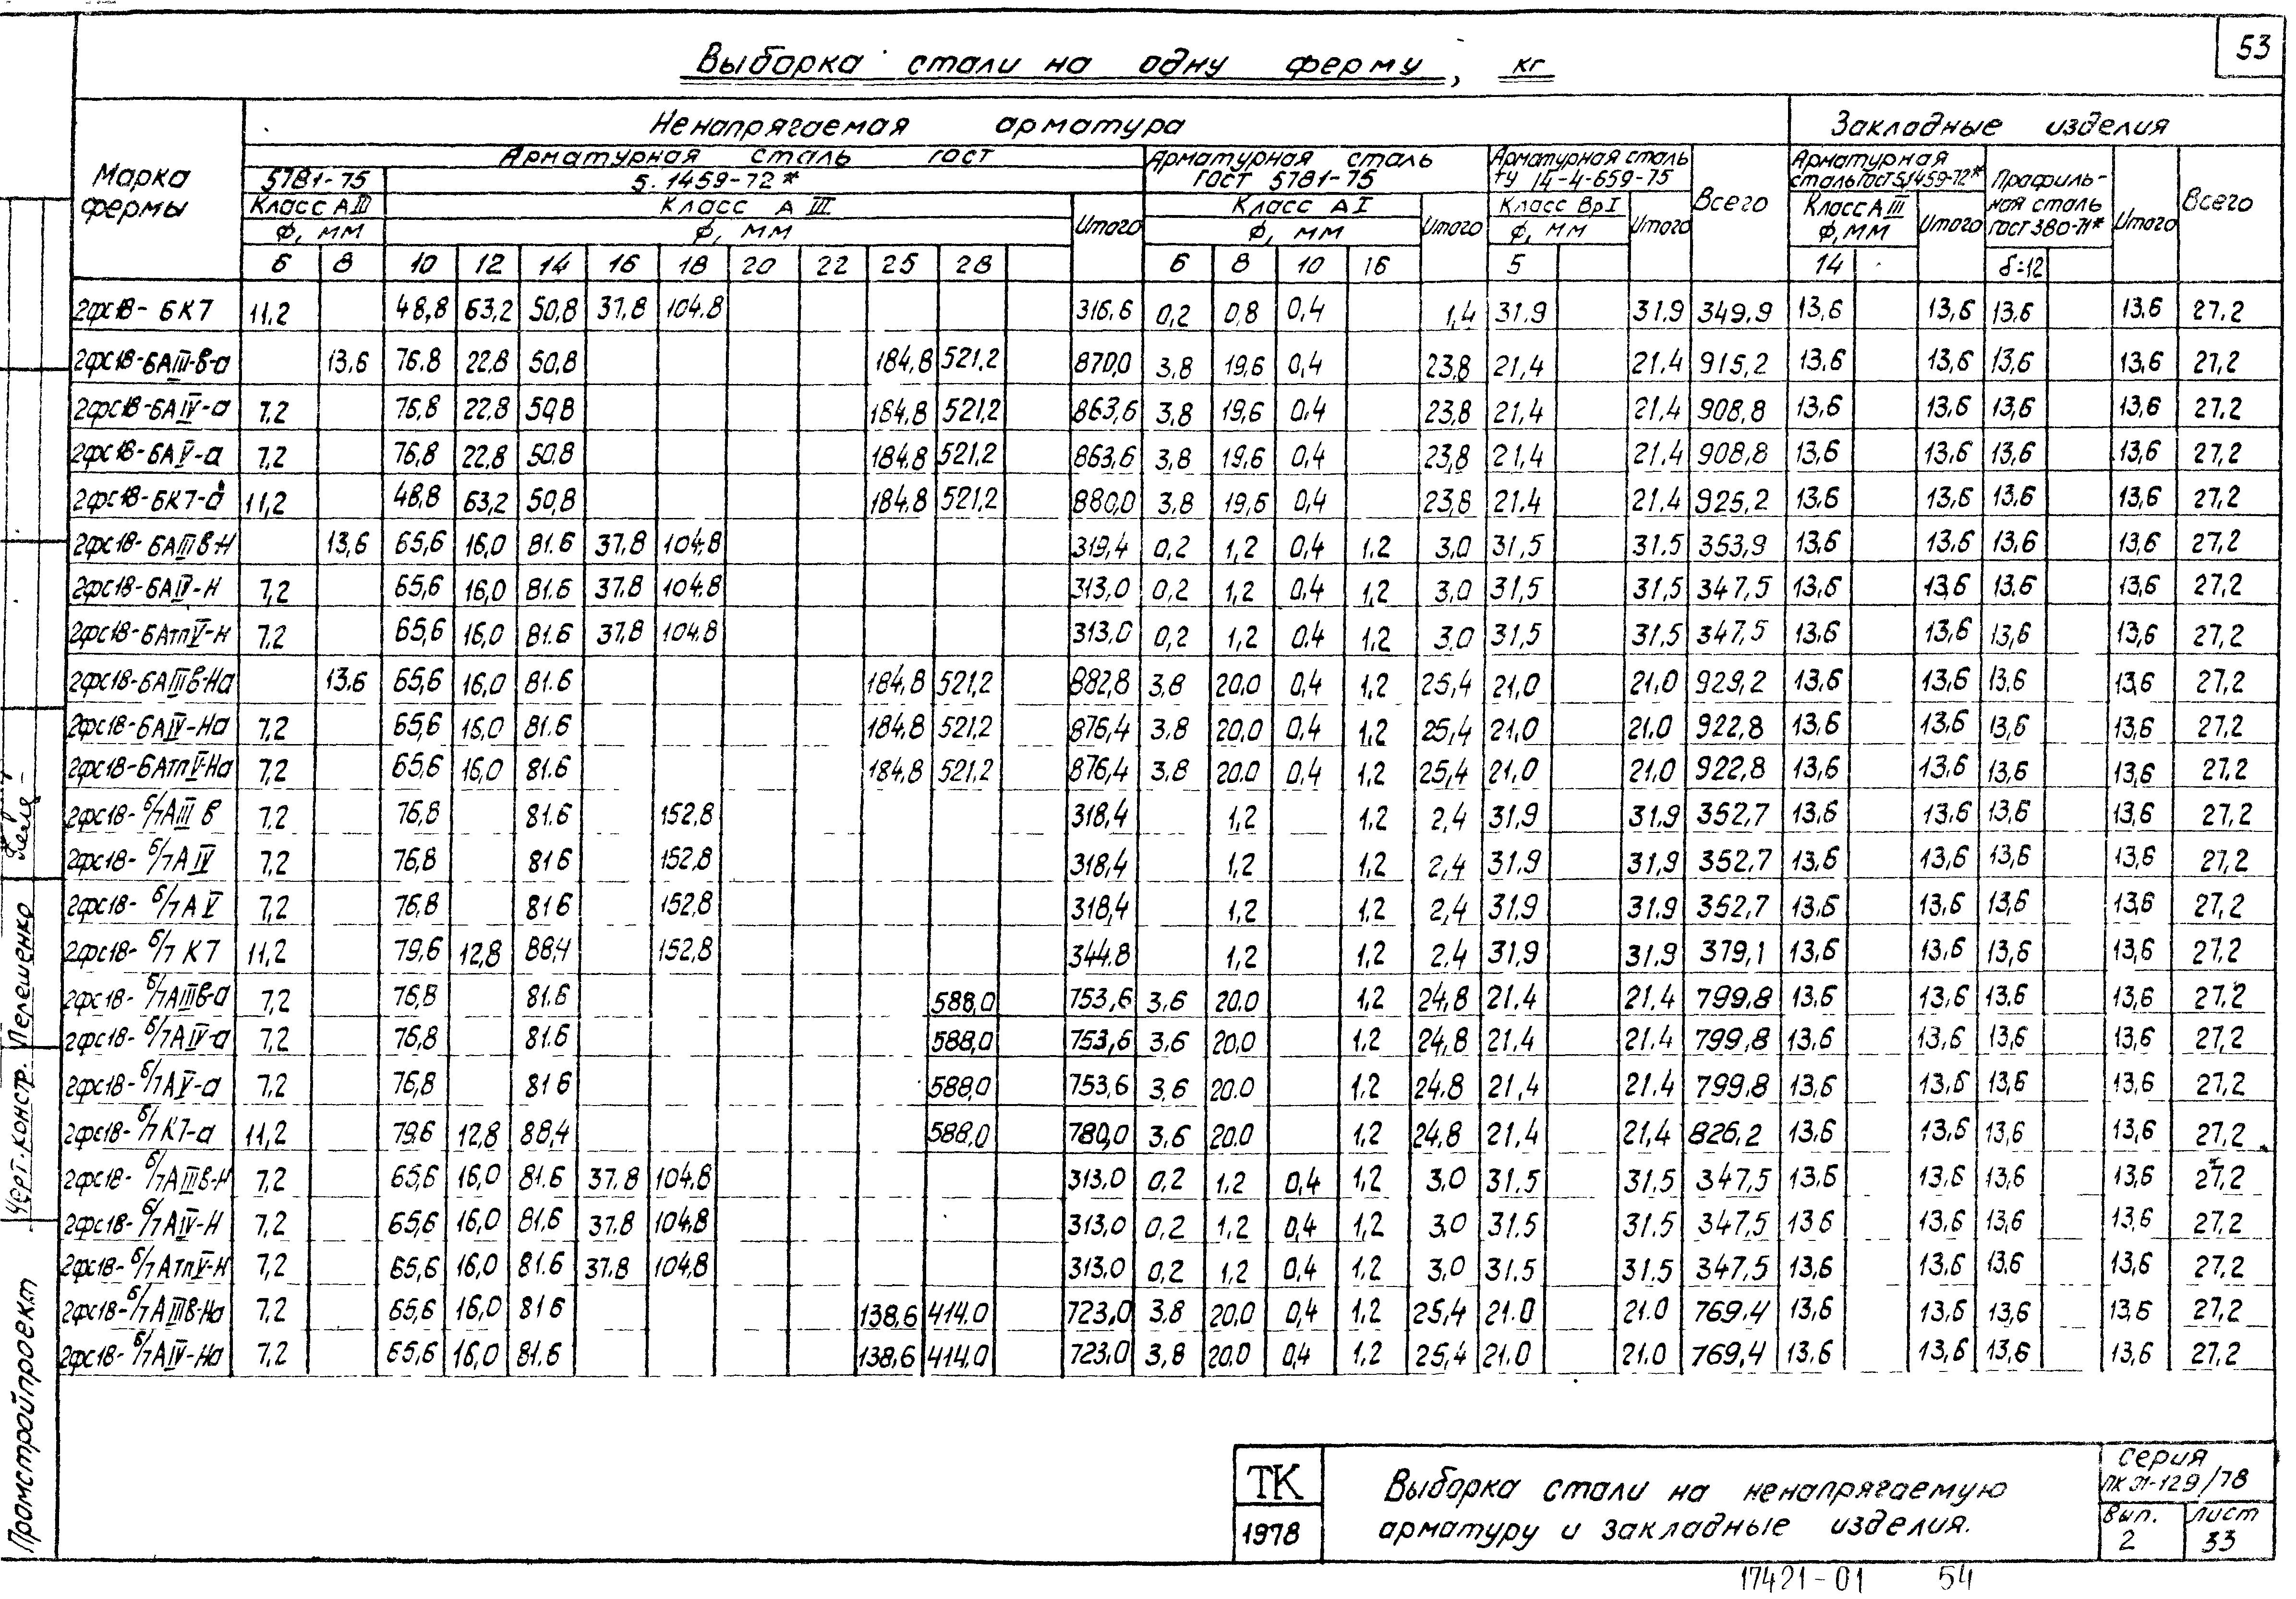 53
Выборка стали на одну ферму, кг
Марка фермы
Ненапрягаемая арматура
Закладные изделия
Арматурная сталь гост
5781-75
5.1459-72*
Класс АIII
Класс А III
Ф, мм
Ф, мм
Итого
Арматурная сталь ГОСТ 5781-75
Класс АI
Ф, мм
Итого
Арматурная сталь ТУ 14-4-659-75
Класс ВрI
Ф, мм
Итого
Всего
Арматурная сталь гост 5.1459-72*
Класс АIII
Ф, мм
Итого
Профильная сталь гост 380-71*
Итого
Всего
6 8 10 12 14 16 18 20 22 25 28 6 8 10 16 5 14 δ=12
2фс18-6К7 11,2 48,8 63,2 50,8 37,8 104.8 316,6 0,2 0,8 0,4 1,4 31.9 31.9 349,9 13,6 13,6 13,6 13,6 27,2
2фс18-6АIII-в-а 13,6 76.8 22,8 50,8 184,8 521,2 870,0 3,8 19,6 0,4 23,8 21,4 21.4 915,2 13,6 13,6 13,6 13,6 27,2
2фс18-6АIV-а 7,2 76,8 22,8 50,8 184,8 521,2 863,6 3,8 19,6 0,4 23,8 21,4 21,4 908,8 13,6 13,6 13,6 13,6 27,2
2фс18-6АV-а 7,2 76,8 22,8 50,8 184,8 521,2 863,6 3,8 19,6 0,4 23,8 21,4 21.4 908,8 13,6 13,6 13,6 13,6 27,2
2фс18-6К7-а 11,2 48,8 63,2 50,8 184,8 521,2 880,0 3,8 19,6 0,4 23,8 21.4 21.4 925,2 13,6 13,6 13,6 13,6 27,2
2фс18-6АIIIв-Н 13,6 65,6 16,0 81.6 37,8 104,8 319,4 0,2 1,2 0,4 1.2 3,0 31,5 31.5 353,9 13,6 13.6 13,6 13,6 27,2
2фс18-6АIV-Н 7,2 65,6 16,0 81.6 37,8 104.8 313,0 0,2 1,2 0,4 1,2 3,0 31,5 31,5 347,5 13,6 13,6 13,6 13,6 27,2
2фс18-6АтпV-Н 7,2 65,6 16,0 81.6 37,8 104.8 313,0 0,2 1,2 0.4 1,2 3,0 31,5 31.5 347,5 13,6 13,6 13,6 13,6 27,2
2фс18-6АIIIв-На 13.6 65,6 16,0 81.6 184,8 521,2 882,8 3,8 20,0 0,4 1,2 25,4 21,0 21.0 929,2 13,6 13,6 13,6 13,6 27,2
2фс18-6АIV-На 7,2 65,6 16,0 81.6 184,8 521,2 876,4 3.8 20,0 0,4 1,2 25,4 21,0 21.0 922,8 13,6 13,6 13,6 13,6 27,2
2фс18-6АтпV-На 7,2 65,6 16,0 81.6 184,8 521,2 876,4 3,8 20.0 0,4 1,2 25,4 21,0 21.0 922,8 13,6 13,6 13,6 13,6 27,2
2фс18-6/7АIII в 7,2 76,8 81.6 152,8 318,4 1,2 1.2 2,4 31,9 31.9 352,7 13,6 13.6 13,6 13,6 27,2
2фс18-6/7А IV 7,2 76,8 81 6 152,8 318,4 1,2 1,2 2,4 31.9 31,9 352,7 13,6 13,6 13,6 13,6 27,2
2фс18-6/7А V 7,2 76,8 81 6 152,8 318,4 1,2 1.2 2,4 31.9 31.9 352,7 13,6 13,6 13,6 13,6 27,2
2фс18-6/7 К7 11,2 79,6 12,8 88,4 152,8 344.8 1,2 1.2 2.4 31,9 31.9 379,1 13,6 13,6 13,6 13,6 27,2
2фс18-6/7АIIIв-а 7,2 76,8 81.6 588,0 753,6 3,6 20.0 1,2 24,8 21.4 21.4 799,8 13,6 13,6 13,6 13,6 27,2
2фс18-6/7АIV-а 7,2 76,8 81.6 588,0 753,6 3.6 20,0 1.2 24,8 21.4 21.4 799,8 13,6 13,6 13,6 13,6 27,2
2фс18-6/7АV-а 7,2 76,8 81 6 588,0 753,6 3,6 20.0 1.2 24.8 21,4 21.4 799,8 13,6 13,6 13,6 13,6 27,2
2фс18-6/7К7-а 11,2 79,6 12,8 88,4 588,0 780,0 3,6 20.0 1,2 24,8 21,4 21,4 826,2 13,6 13,6 13,6 13,6 27,2
2фс18-6/7АIIIв-Н 7,2 65,6 16,0 81.6 37.8 104.8 313,0 0,2 1,2 0,4 1,2 3,0 31.5 31.5 347,5 13,6 13,6 13,6 13,6 27,2
2фс18-6/7АIV-Н 7,2 65,6 16,0 81,6 37.8 104,8 313,0 0,2 1,2 0,4 1,2 3,0 31.5 31.5 347,5 13 6 13,6 13,6 13,6 27,2
2фс18-6/7АтпV-Н 7,2 65,6 16,0 81.6 37.8 104,8 313,0 0,2 1,2 0,4 1,2 3,0 31.5 31.5 347,5 13,6 13,6 13,6 13,6 27,2
2фс18-6/7АIIIв-На 7,2 65,6 16,0 81 6 138,6 414,0 723,0 3,8 20,0 0,4 1,2 25,4 21.0 21.0 769,4 13,6 13,6 13,6 13,6 27,2
2фс18-6/7АIV-На 7,2 65,6 16,0 81.6 138,6 414,0 723,0 3,8 20.0 0,4 1,2 25,4 21.0 21.0 769,4 13.6 13,6 13,6 13,6 27,2
Промстройпроект
Черт. констр. Перешенко
ТК
1978
Выборка стали на ненапрягаемую
арматуру и закладные изделия.
Серия
ПК 01-129/78
Вып.
2
Лист
33
17421-01 54